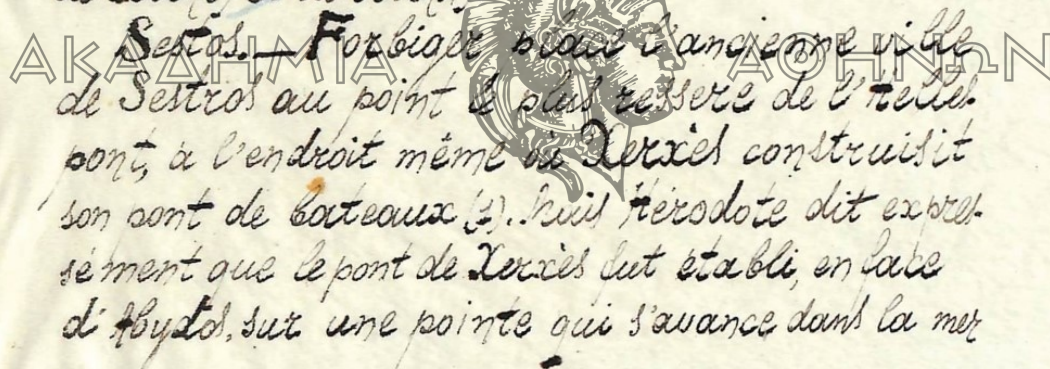 Sestos. — Forbiger place l'ancienne ville
ΑΚΑΔΗΜΙΑ ΑΘΗΝΩΝ
de Sestros au point le plus resserè de l'Helles-
pont, à l'endroit même où Xerxès construisit
son pont de bateaux (1). Mais Hérodote dit expres-
sément que le pont de Xerxès fut établi, en face
d'Abydos, sur une pointe qui s'avance dans la mer